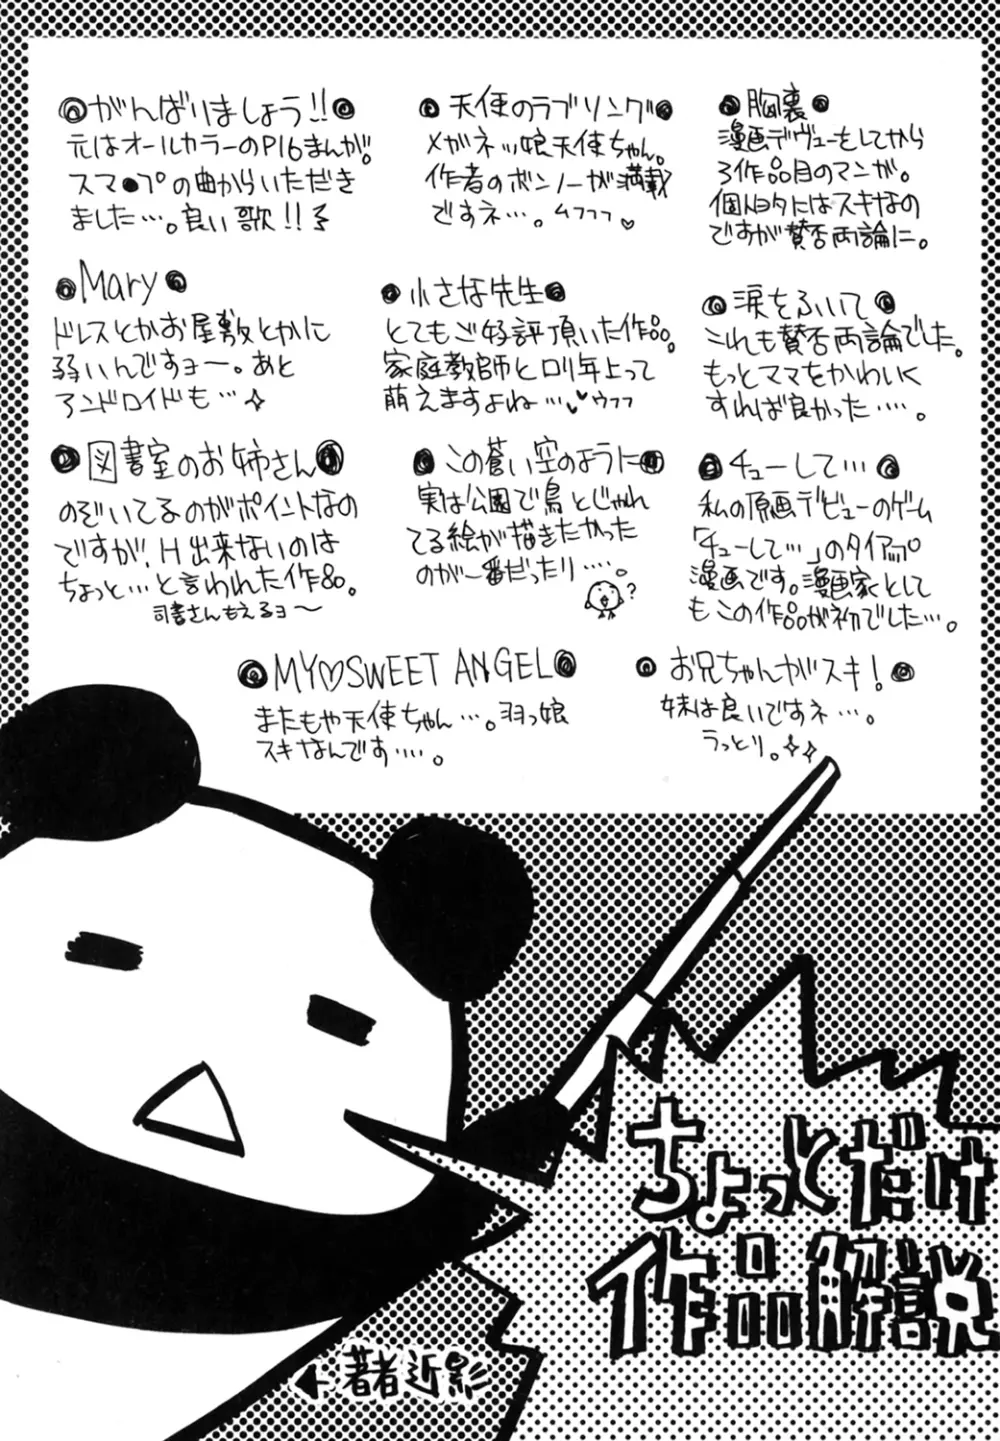 ◎がんばりましょう!!◎
元はオールカラーのP16まんが。
スマ●プの曲からいただき
ました…。良い歌!!
◎天使のラブソング◎
メガネッ娘天使ちゃん。
作者のボンノーが満載
ですネ…。ムフフフ♡
◎胸裏◎
漫画デヴューをしてから
3作品目のマンガ。
個人的にはスキなの
ですが賛否両論に。
◎Mary◎
ドレスとかお屋敷とかに
弱いんですョ〜。あと
アンドロイドも…✧
◎小さな先生◎
とてもご好評頂いた作品。
家庭教師とロリ年上って
萌えますよね…♥ウフフ
◎涙をふいて◎
これも賛否両論でした。
もっとママをかわいく
すれば良かった……。
◎図書室のお姉さん◎
のぞいてるのがポイントなの
ですが!H出来ないのは
ちょっと…と言われた作品。
司書さんもえるョ〜
◎この蒼い空のように◎
実は公園で鳥とじゃれ
てる絵が描きたかった
のが一番だったり……。
?
◎チューして…◎
私の原画デビューのゲーム
「チューして…」のタイアップ
漫画です。漫画家として
もこの作品が初でした…。
◎MY♡SWEET ANGEL◎
またもや天使ちゃん…。羽っ娘
スキなんです……。
◎お兄ちゃんがスキ!◎
妹は良いですネ…。
うっとり。✧✧
ちょっとだけ
作品解説
←著者近影